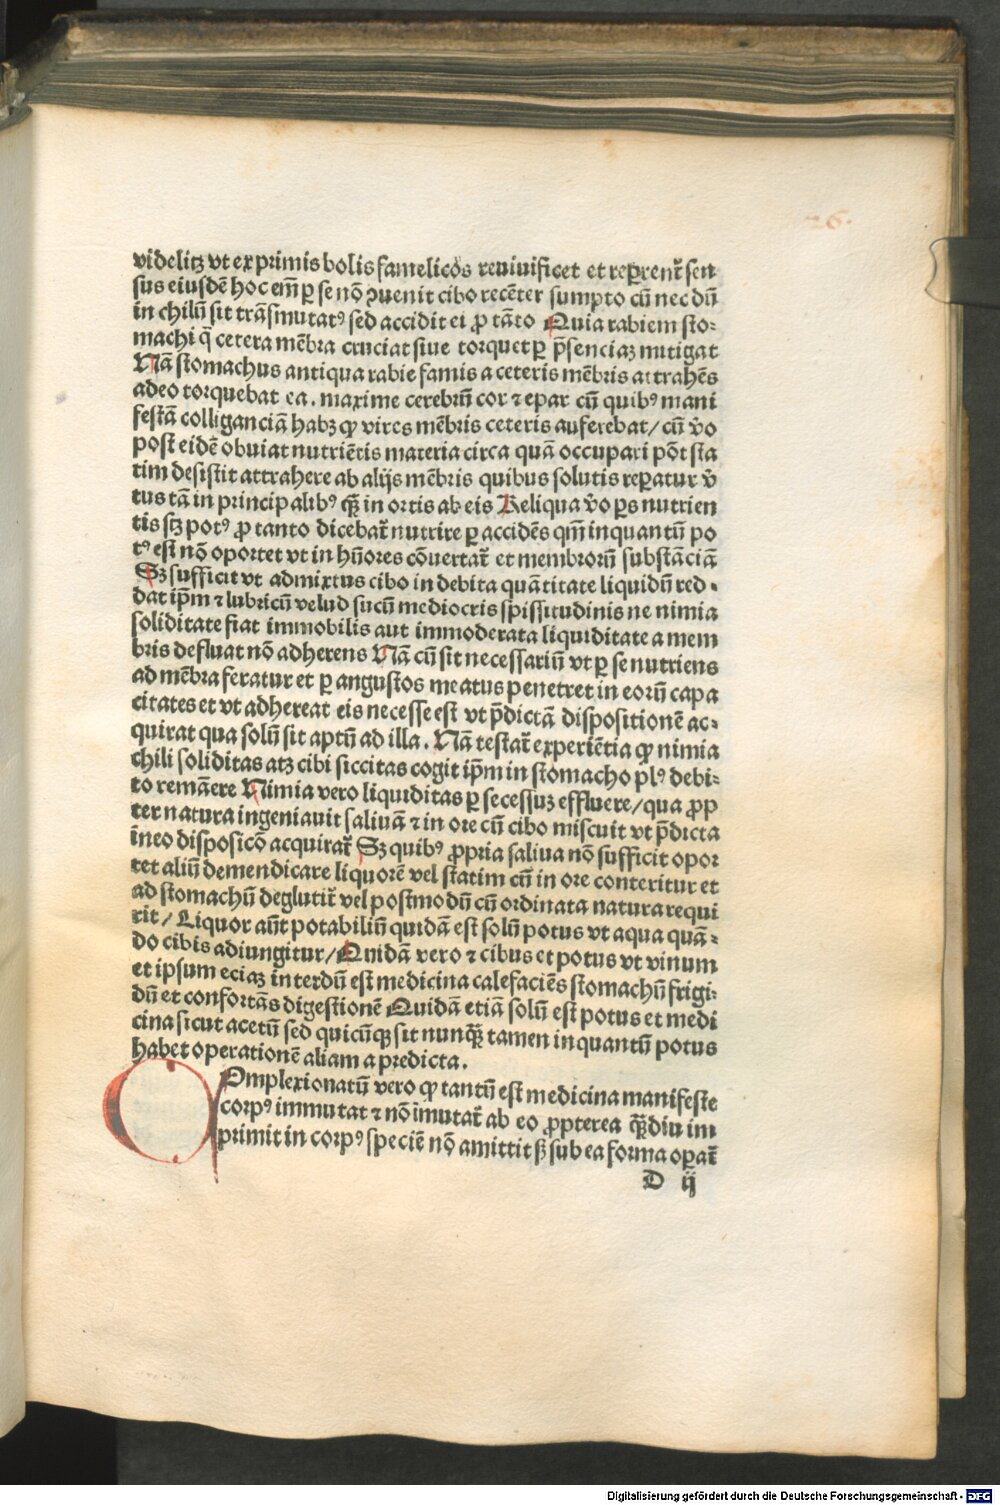 26.
videlitꝫ vt ex primis bolis famelicos reuiuificet et rep̱renr̄ sen
sus eiusdē hoc em̄ ꝑ se nō ꝯuenit cibo recēter sumpto cū nec dū
in chilū sit trāsmutatꝰ sed accidit ei ꝓ tāto Quia rabiem sto⸗
machi q̄ cetera mēbra cruciat siue torquet ꝑ p̄senciaꝫ mitigat
Nā stomachus antiqua rabie famis a ceteris mēbris attrahēs
adeo torquebat ea. maxime cerebrū cor ⁊ epar cū quibꝰ mani
festā colliganciā habꝫ ꝙ vires mēbris ceteris auferebat/ cū v̄o
post eidē obuiat nutriētis materia circa quā occupari pōt sta
tim desistit attrahere ab alijs mēbris quibus solutis reꝑatur v̄
tus tā in principalibꝰ q̄ꝫ in ortis ab eis Reliqua v̄o ꝑs nutrien
tis sꝫ potꝰ ꝓ tanto dicebat̄ nutrire ꝑ accidēs qm̄ inquantū po
tꝰ est nō oportet vt in hūores cōuertat̄ et membrorū substāciā
Sꝫ sufficit vt admixtus cibo in debita quātitate liquidū red⸗
dat ip̄m ⁊ lubricū velud sucū mediocris spissitudinis ne nimia
soliditate fiat immobilis aut immoderata liquiditate a mem
bris defluat nō adherens Nā cū sit necessariū vt ꝑ se nutriens
ad mēbra feratur et ꝑ angustos meatus penetret in eorū capa
citates et vt adhereat eis necesse est vt p̄dictā dispositionē ac⸗
quirat qua solū sit aptū ad illa. Nā testat̄ experiētia ꝙ nimia
chili soliditas atꝫ cibi siccitas cogit ip̄m in stomacho plꝰ debi⸗
to remāere Nimia vero liquiditas ꝑ secessuꝫ effluere/ qua ꝓp
ter natura ingeniauit saliuā ⁊ in ore cū cibo miscuit vt p̄dicta
īn eo disposicō acquirat̄ Sꝫ quibꝰ ꝓpria saliua nō sufficit opor
tet aliū demendicare liquorē vel statim cū in ore conteritur et
ad stomachū deglutit̄ vel postmodū cū ordinata natura requi
rit/ Liquor aūt potabiliū quidā est solū potus vt aqua quā⸗
do cibis adiungitur/ Quidā vero ⁊ cibus et potus vt vinum
et ipsum eciaꝫ interdū est medicina calefaciēs stomachū frigi⸗
dū et confortās digestionē Quidā etiā solū est potus et medi
cina sicut acetū sed quicūqꝫ sit nunq̄ꝫ tamen inquantū potus
habet operationē aliam a predicta.
COmplexionatū vero ꝙ tantū est medicina manifeste
corpꝰ immutat ⁊ nō īmutat̄ ab eo ꝓpterea q̄ꝫdiu im
primit in corpꝰ speciē nō amittit sꝫ sub ea forma oꝑat̄
D ij
Digitalisierung gefördert durch die Deutsche Forschungsgemeinschaft - DFG